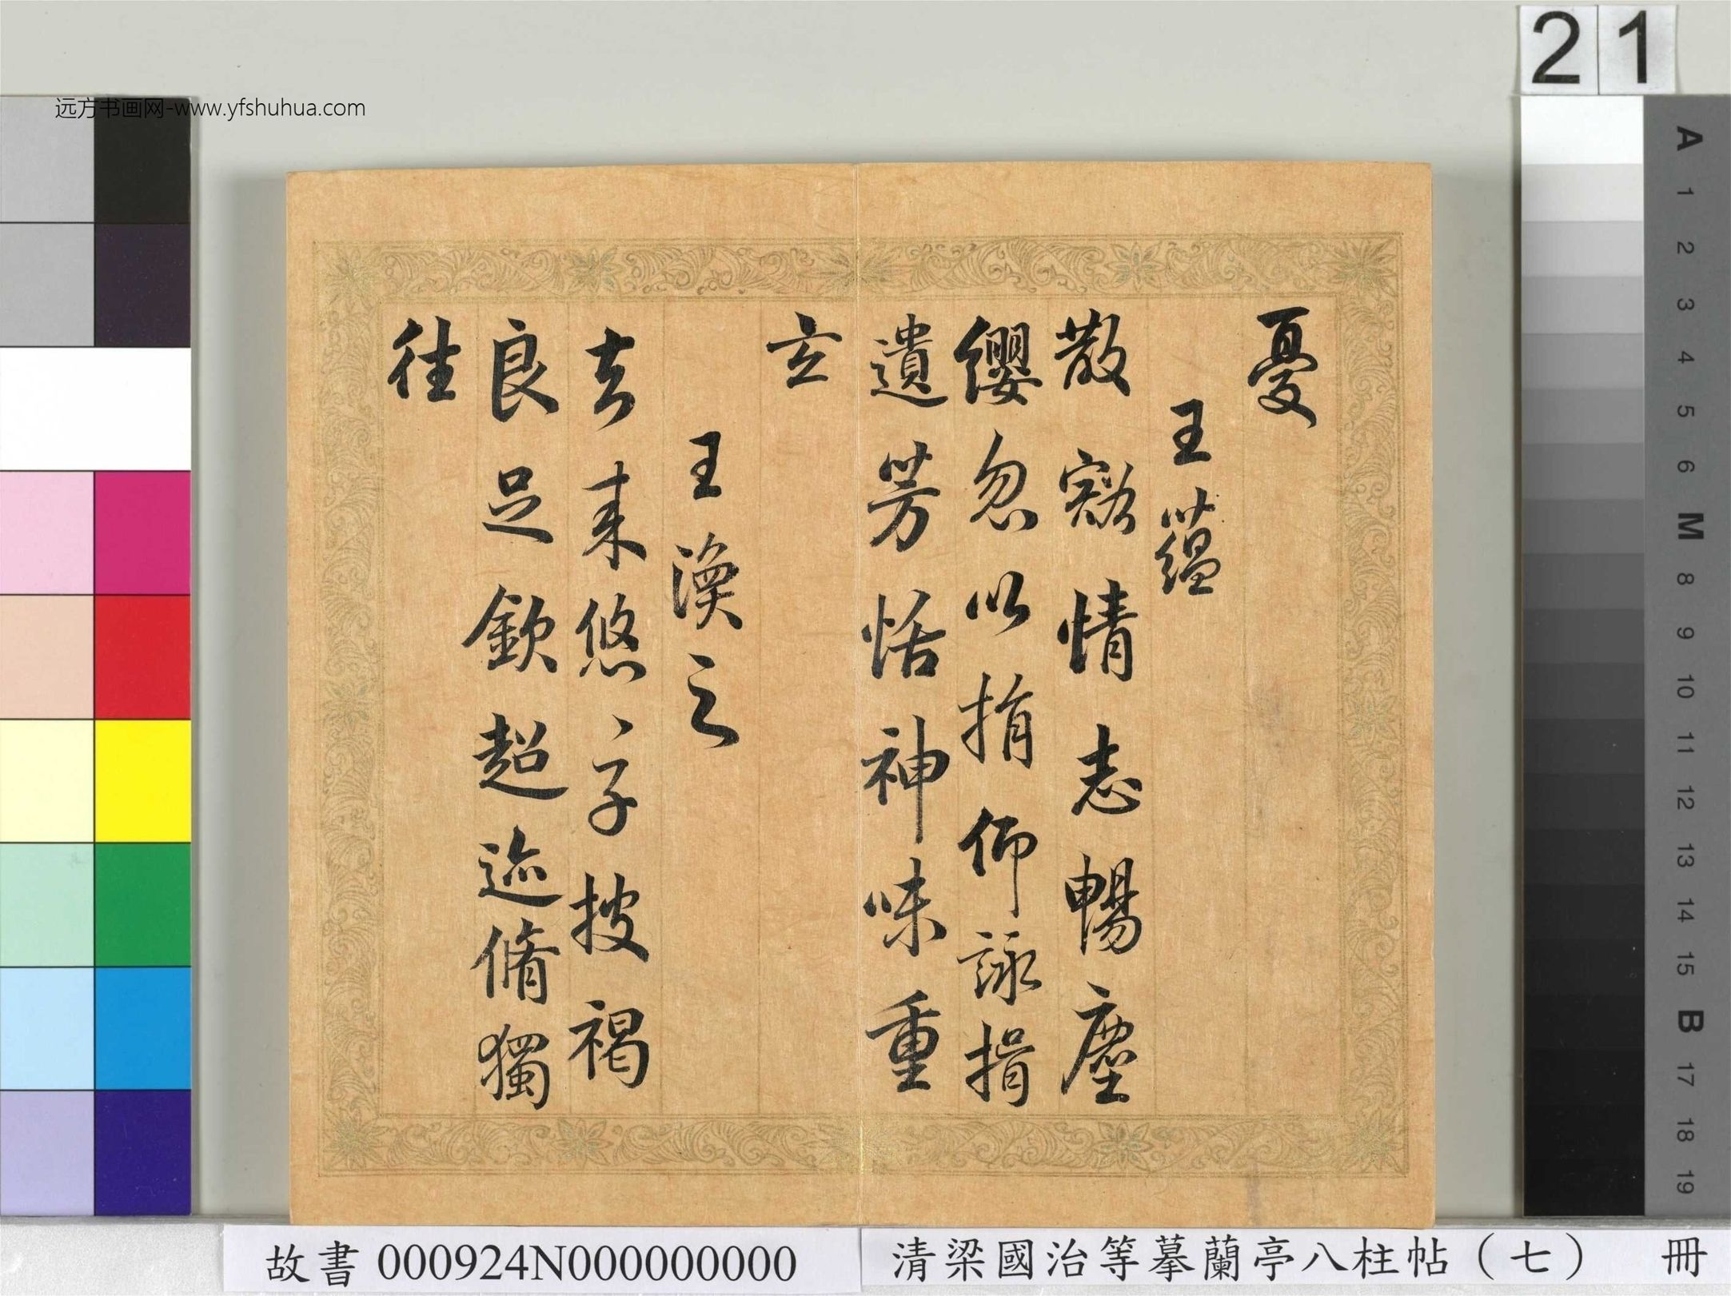 21
远方书画网-www.yfshuhua.com
憂
王蘊
散豁情志暢塵
纓忽以捐仰詠揖
遺芳恬神味重
玄
王渙之
去来悠〻子披褐
良足欽超迹脩獨
往
A
1
2
3
4
5
6
M
8
9
10
11
12
13
14
15
B
17
18
19
故書 000924N000000000
清梁國治等摹蘭亭八柱帖（七） 冊